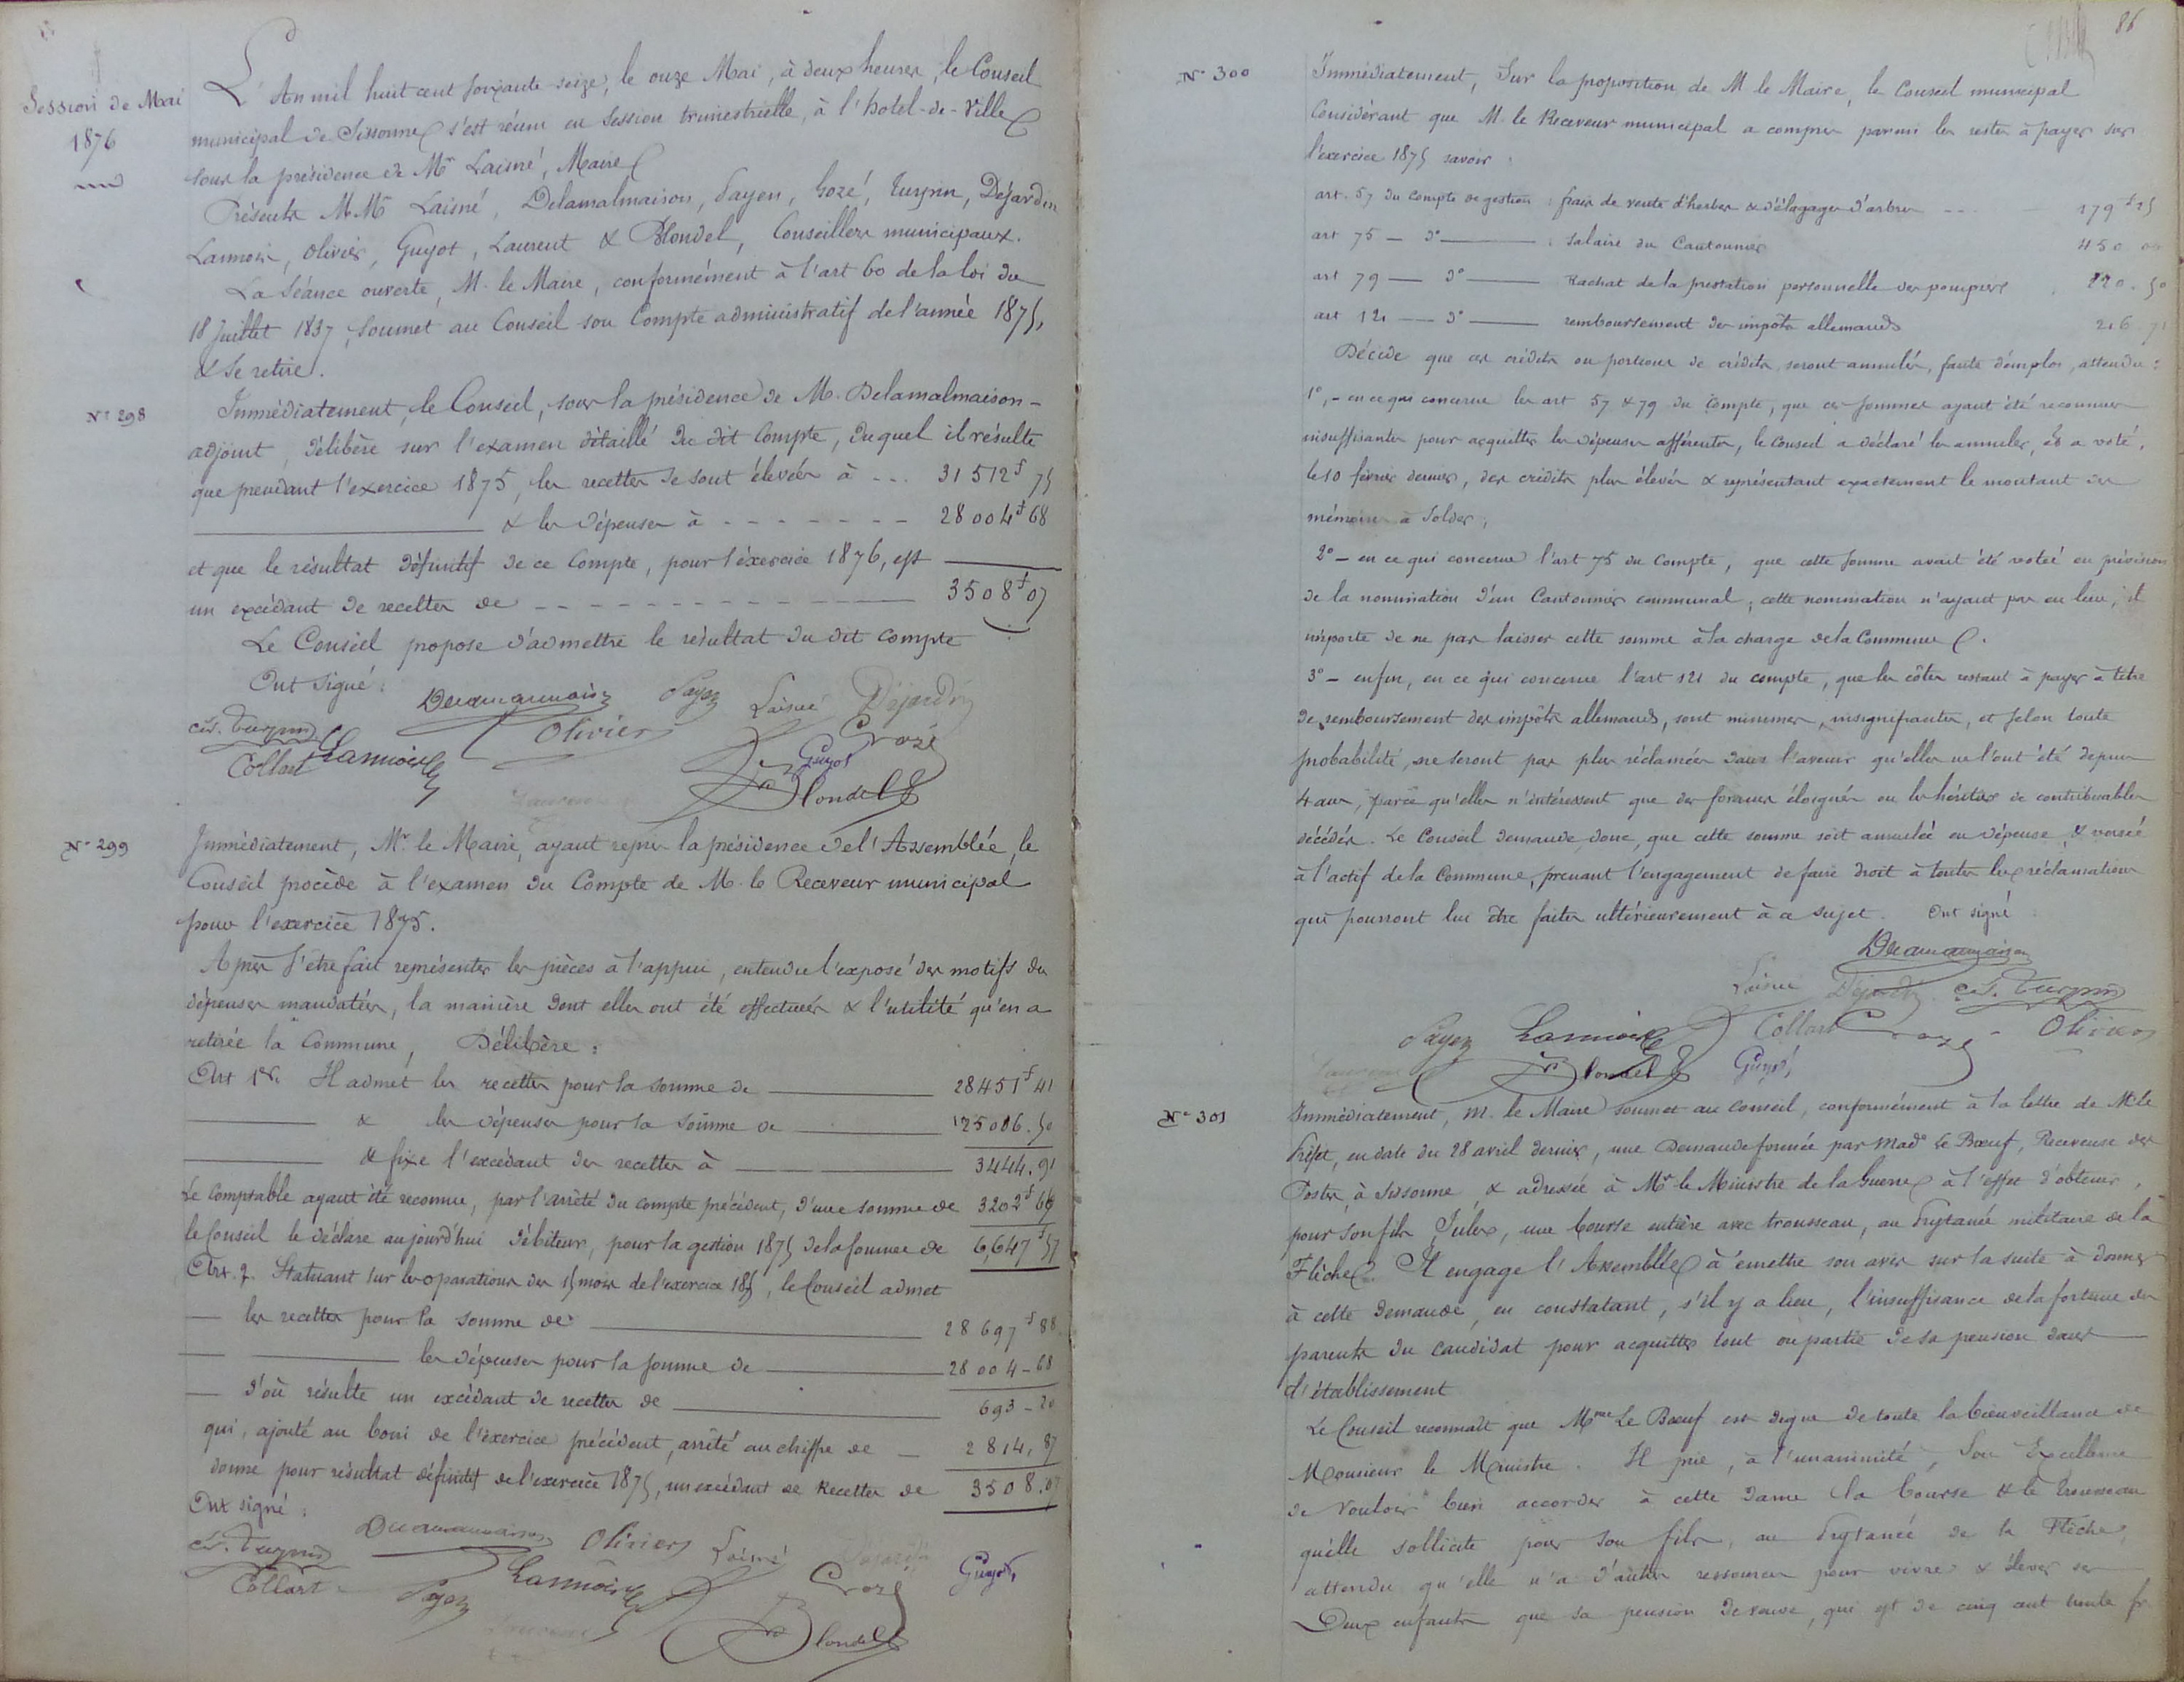 Session de Mai
1876
L'An mil huit cent soixante seize, le onze Mai, à deux heures, le Conseil
municipal de Sissonne s'est réuni en session trimestrielle, à l'hotel-de-Ville
sous la présidence de Mr Laisné, Maire
Présents MMrs Laisné, Delamalmaison, Payen, Gozé, Turpin, Déjardin
Lannois, Olivier, Guyot, Laurent & Blondel, Conseillers municipaux.
La Séance ouverte, M. le Maire, conformément à l'art 60 de la loi du
18 Juillet 1837, soumet au Conseil son Compte administratif de l'année 1875,
& se retire.
No 298
Immédiatement, le Conseil, sous la présidence de M. Delamalmaison -
adjoint, délibère sur l'examen détaillé du dit Compte, duquel il résulte
que pendant l'exercice 1875, les recettes se sont élevées à --- 31 512f 75
& les dépenses à - - - - - - - 28 004f 68
et que le résultat définitif de ce Compte, pour l'éxercice 1876, est
un excédant de recettes de - - - - - - - 3508f 07
Le Conseil propose d'admettre le résultat du dit compte
Ont signé :
Delamalmaison Payen Laisné Déjardin
Ct. Turpin Olivier Crozé
Collart Lannois Guyot
Blondel
Laurent
No 299
Immédiatement, Mr le Maire, ayant repris la présidence de l'Assemblée, le
Conseil procède à l'examen du Compte de M. le Receveur municipal
pour l'exercice 1875.
Après s'être fait représenter les pièces à l'appui, entendu l'exposé des motifs des
dépenses mandatées, la manière dont elles ont été effectuées & l'utilité qu'en a
retirée la Commune, Délibère :
Art 1er. Il admet les recettes pour la somme de 28451f 41
& les dépenses pour la somme de 25006.50
& fixe l'excédant des recettes à 3444.91
Le Comptable ayant été reconnu, par l'arrêté du compte précédent, d'une somme de 3202f 66
le Conseil le déclare aujourd'hui débiteur, pour la gestion 1875 de la somme de 6,647f 57
Art. 2. Statuant sur les opérations des 15 mois de l'exercice 1875, le Conseil admet
les recettes pour la somme de 28 697f 88
les dépenses pour la somme de 28 004 - 68
d'où résulte un excédant de recettes de 693 - 20
qui, ajouté au boni de l'exercice précédent, arrêté au chiffre de 2814, 87
donne pour résultat définitif de l'exercice 1875, un excédant de Recettes de 3508.07
Ont signé :
Ct. Turpin Delamalmaison Olivier Laisné Déjardin Guyot
Collart Payen Lannois Crozé
Laurent Blondel
86
No 300
Immédiatement, Sur la proposition de M le Maire, le Conseil municipal
Considérant que M. le Receveur municipal a compris parmi les restes à payer sur
l'exercice 1875 savoir :
art. 57 du Compte de gestion : frais de vente d'herbes & d'élagages d'arbres --- 179f 25
art 75 — do — : Salaire du Cantonnier 450 00
art 79 — do — Rachat de la prestation personnelle des pompiers 220.50
art 121 — do — remboursement des impôts allemands 216.71
Décide que ces crédits ou portions de crédits seront annulés, faute d'emploi, attendu :
1o, - en ce qui concerne les art 57 & 79 du Compte, que ces sommes ayant été reconnues
insuffisantes pour acquitter les dépenses afférentes, le Conseil a déclaré les annuler, et a voté,
le 10 février dernier, des crédits plus élevés & représentant exactement le montant des
mémoires à Solder,
2o - en ce qui concerne l'art 75 du Compte, que cette somme avait été votée en prévision
de la nomination d'un Cantonnier communal ; cette nomination n'ayant pas eu lieu, il
importe de ne pas laisser cette somme à la charge de la Commune.
3o - enfin, en ce qui concerne l'art 121 du compte, que les côtes restant à payer à titre
de remboursement des impôts allemands, sont minimes, insignifiantes, et selon toute
probabilité, ne seront pas plus réclamées dans l'avenir qu'elles ne l'ont été depuis
4 ans, parce qu'elles n'intéressent que des forains éloignés ou les héritiers de contribuables
décédés. Le Conseil demande donc, que cette somme soit annulée en dépense, & versée
à l'actif de la Commune, prenant l'engagement de faire droit à toutes les réclamations
qui pourront lui être faites ultérieurement à ce sujet. Ont signé
Delamalmaison
Laisné Déjardin Ct. Turpin
Payen Lannois Collart Crozé Olivier
Laurent Blondel Guyot
No 301
Immédiatement, M. le Maire soumet au Conseil, conformément à la lettre de M le
Préfet, en date du 28 avril dernier, une Demande formée par Made Le Bœuf, Receveuse des
Postes, à Sissonne & adressée à Mr le Ministre de la Guerre à l'effet d'obtenir,
pour son fils, Jules, une bourse entière avec trousseau, au Prytanée militaire de la
Flèche. Il engage l'Assemblée à émettre son avis sur la suite à donner
à cette demande, en constatant, s'il y a lieu, l'insuffisance de la fortune des
parents du candidat pour acquitter tout ou partie de sa pension dans
l'établissement
Le Conseil reconnaît que Mme Le Bœuf est digne de toute la bienveillance de
Monsieur le Ministre. Il prie, à l'unanimité, Son Excellence
de vouloir bien accorder à cette dame la bourse & le trousseau
qu'elle sollicite pour son fils, au Prytanée de la Flèche,
attendu qu'elle n'a d'autres ressources pour vivre & élever ses
Deux enfants que sa pension de veuve, qui est de cinq cent trente fr